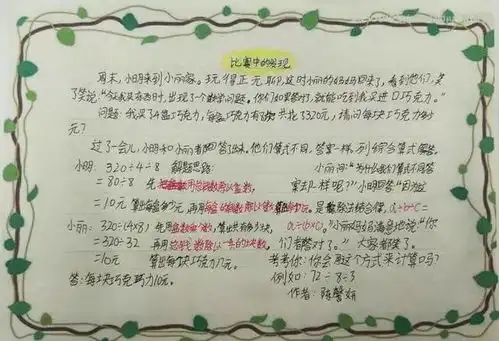 比赛中的发现
周末,小明来到小丽家。玩得正元,这时小丽的妈妈回来了,看到他们,笑
了笑说:“我买东西时,出现了个数学问题。你们如果答对了,就能吃到我买进口巧克力。”
问题:我买了4盒巧克力,每盒巧克力有8块共花了320元,请问每块巧克力多少
元?
过了一会儿,小明和小丽都回答了出来。他们算式不同,答案一样。列综合算式解答。
小明: 320÷4÷8 解题思路:
=80÷8 先用总价钱除以盒数,
=10元 算出每盒多少元,再用每盒的钱数除以块数
小丽: 320÷(4×8) 先用盒数乘块数,算出共有多少块,
=320÷32 再用总钱数除以一共的块数
=10元 算出每块巧克力几元。
答:每块巧克力10元。
小丽问:“为什么我们算式不同答
案却一样呢?”小明回答“因为这
是数除法结合律,a÷b÷c=
a÷(b×c)。”小丽妈妈满意地说“你
们答对了。”大家都笑了。
考考你:你会用这个方式来计算吗?
例如:72÷8÷3
作者:陈馨妍